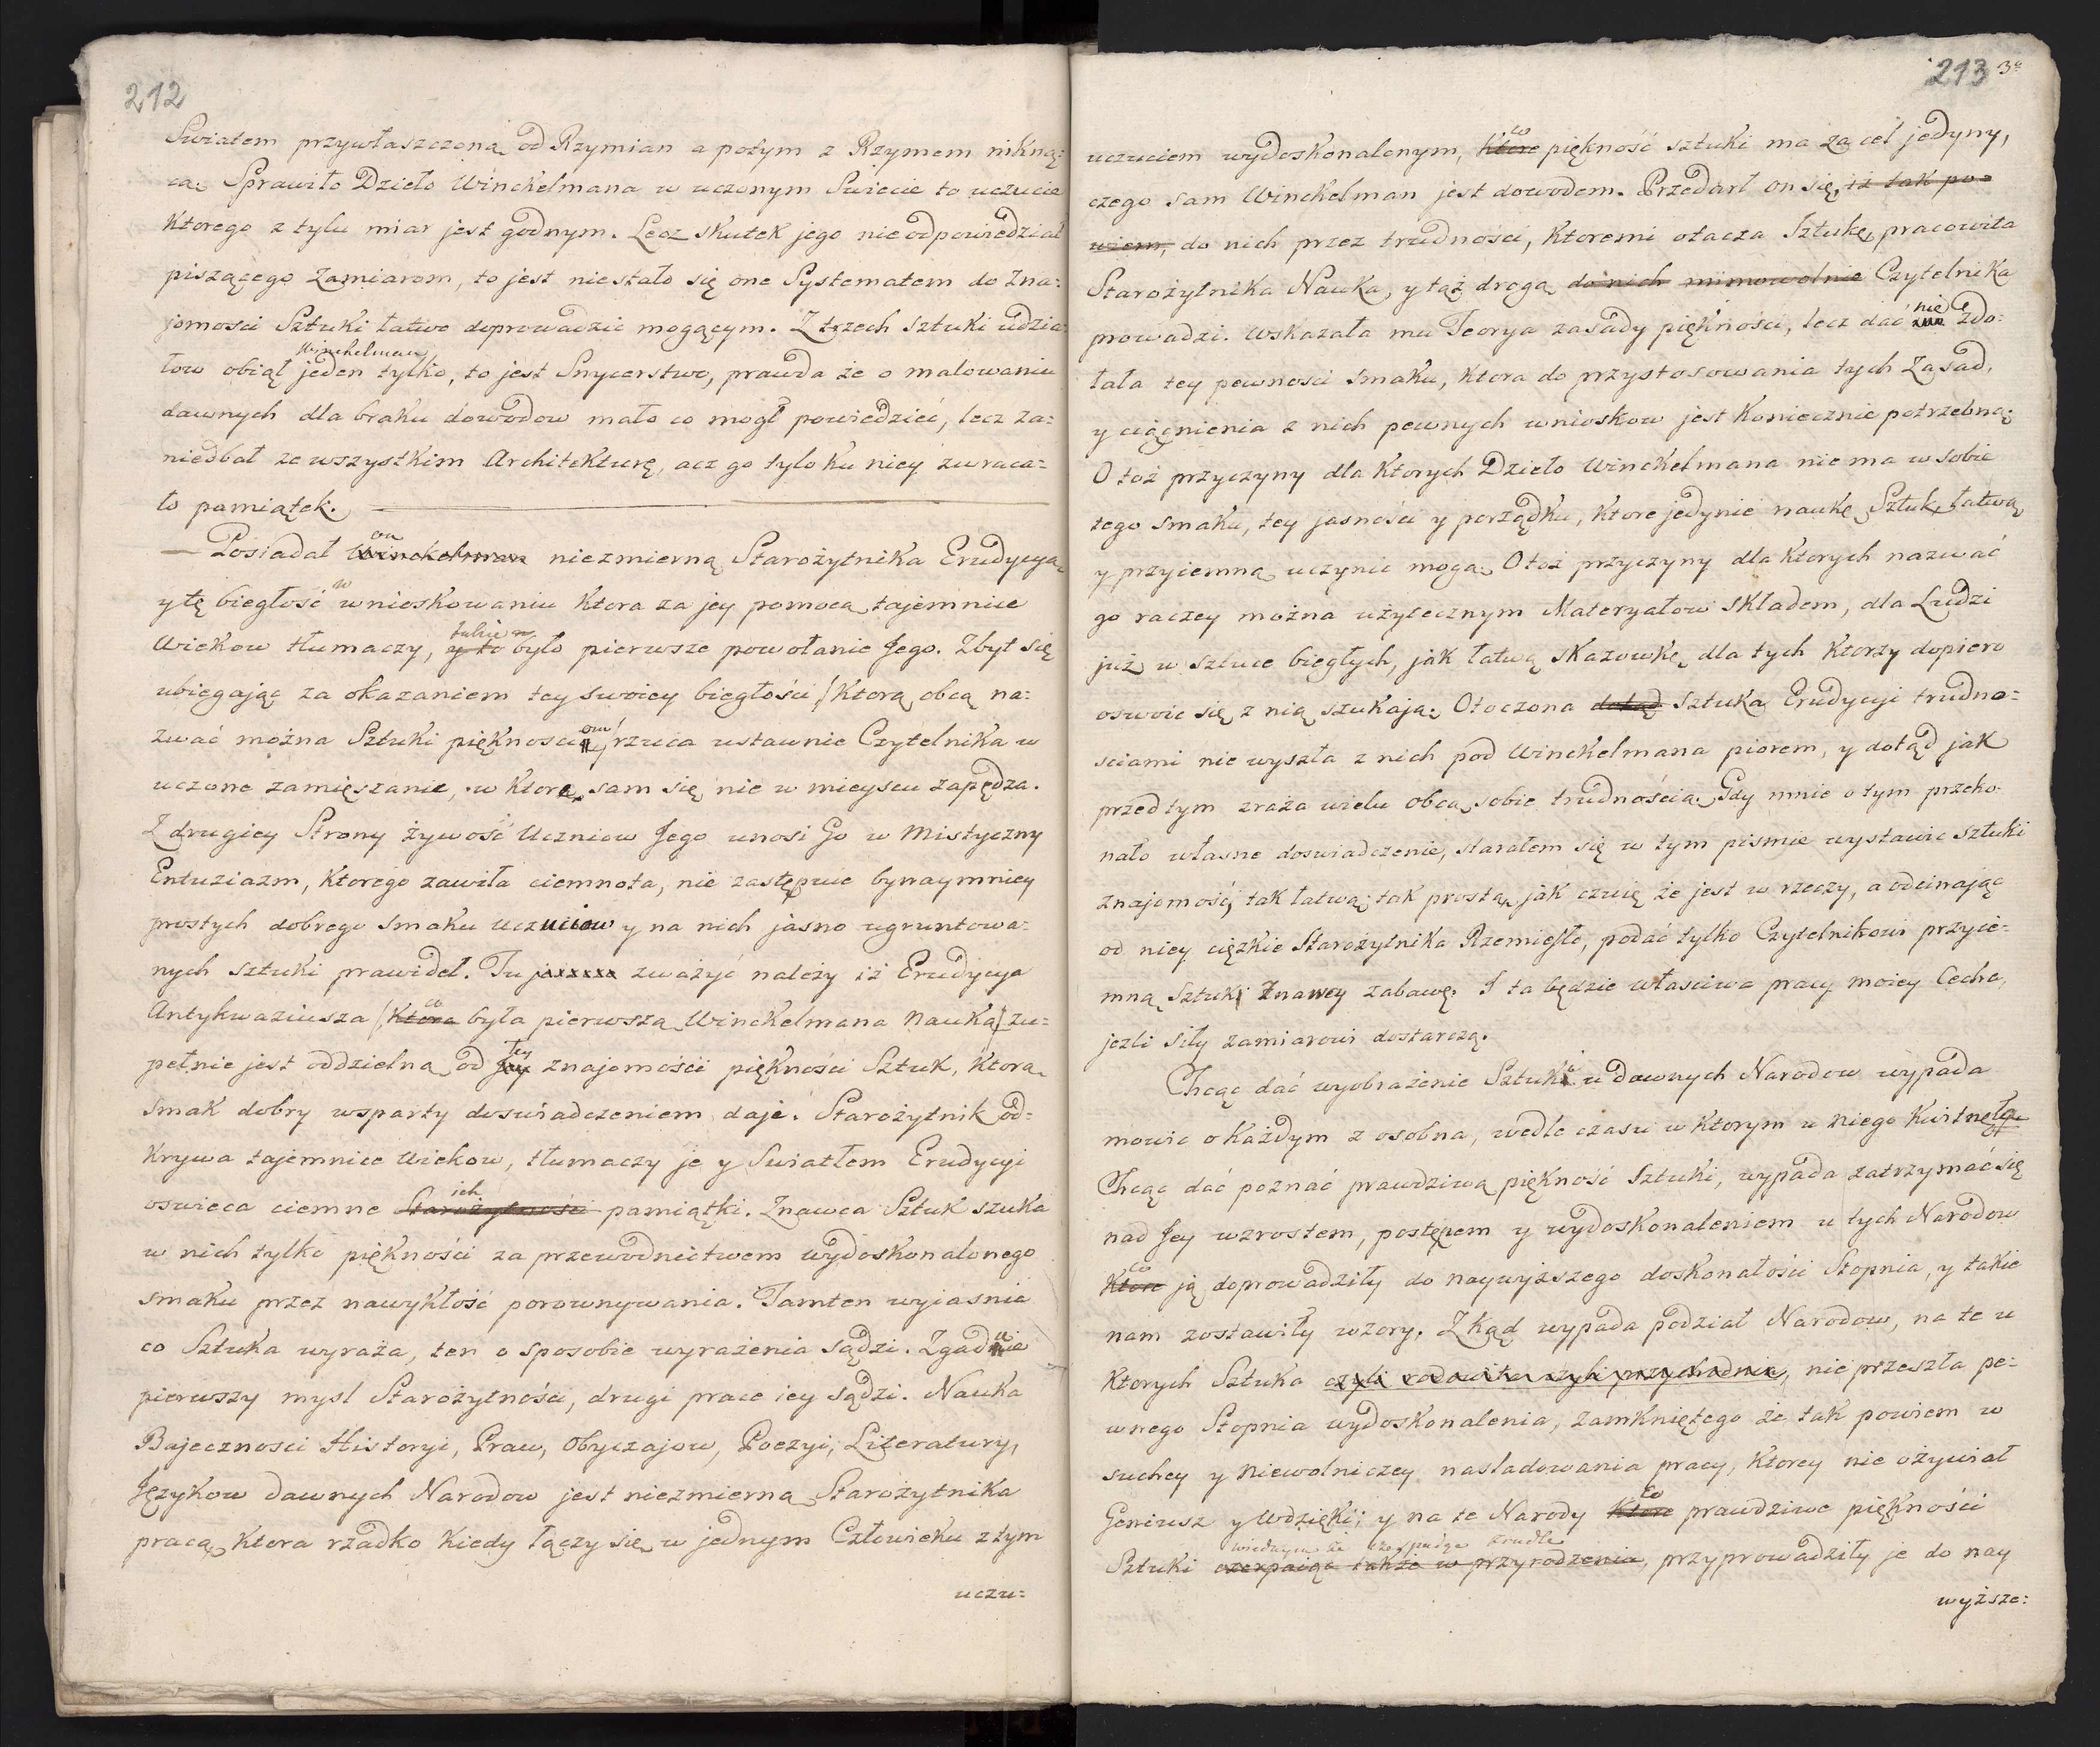 212
Swiatem przywłaszczoną od Rzymian a potym z Rzymem nikną:
cą. Sprawiło Dzieło Winckelmana w uczonym Swiecie to uczucie
Ktorego z tylu miar jest godnym. Lecz skutek jego nieodpowiedział
piszącego zamiarom, to jest niestało się one Systematem do Zna:
jomosci Sztuki łatwo doprowadzic mogącym. Z trzech sztuki udzia:
Winckelman
łow obiął jeden tylko, to jest Snycerstwo, prawda że o malowaniu
dawnych dla braku dowodow mało co mogł powiedzieć, lecz za=
niedbał ze wszystkim Architekturę, acz go tylo ku niey zwraca=
ło pamiątek.
on
— Posiadał Winckelman niezmierną Starożytnika Erudycyą
w
y tę biegłość wnioskowaniu Ktora za jey pomocą tajemnice
takie
Wiekow tłumaczy, y to było pierwsze powołanie Jego. Zbyt się
ubiegając za okazaniem tey swoiey biegłości /Ktorą obcą na=
zwać można Sztuki piękności/ rzuca ustawnie Czytelnika w
uczone zamięszanie, w ktore sam się nie w mieyscu zapędza.
Z drugiey Strony żywość Uczuciow Jego unosi Go w Mistyczny
Entuziazm, Ktorego zawiła ciemnota, nie zastępuie bynaymniey
prostych dobrego smaku uczuciow y na nich jasno ugruntowa:
nych sztuki prawideł. Tu zważyć należy iż Erudycya
co
Antykwariusza /Ktora była pierwszą Winckelmana Nauką/ zu=
tey
pełnie jest oddzielną od Jey znajomości piękności Sztuk, Ktorą
smak dobry wsparty doswiadczeniem daje. Starożytnik od=
Krywa tajemnice Wiekow, tłumaczy je y Swiatłem Erudycyi
ich
oswieca ciemne Starożytności pamiątki. Znawca Sztuk szuka
w nich tylko piękności za przewodnictwem wydoskonalonego
smaku przez nawykłość porownywania. Tamten wyiasnia
co Sztuka wyraża, ten o sposobie wyrażenia sądzi. Zgaduie
pierwszy mysl Starożytności, drugi prace iey sądzi. Nauka
Bajeczności Historyi, Praw, Obyczajow, Poezyi, Literatury,
Języków dawnych Narodow jest niezmierną Starożytnika
pracą, Ktora rzadko Kiedy łączy się w jednym Człowieku z tym
uczu:
213 3
co
uczuciem wydoskonalonym, Ktore piękność sztuki ma za cel jedyny,
czego sam Winckelman jest dowodem. Przedarł on się, iż tak po=
wiem, do nich przez trudności, Ktoremi otacza Sztukę, pracowita
Starożytnika Nauka, y tąż drogą do nich mimowolnie Czytelnika
nie
prowadzi. Wskazała mu Teorya zasady piękności, lecz dać zdo:
łała tey pewnosci smaku, Ktora do przystosowania tych Zasad,
y ciągnienia z nich pewnych wnioskow jest Koniecznie potrzebną.
Otoż przyczyny dla Ktorych Dzieło Winckelmana nie ma w sobie
tego smaku, tey jasności y porządku, Ktore jedynie naukę Sztuk, łatwą
y przyiemną uczynic mogą. Otoż przyczyny dla Ktorych nazwać
go raczey można użytecznym Materyałow Składem, dla Ludzi
już w sztuce biegłych, jak łatwą skazowką dla tych Ktorzy dopiero
oswoic się z nią szukają. Otoczona dotąd sztuka Erudycyi trudno=
sciami nie wyszła z nich pod Winckelmana piorem, y dotąd jak
przedtym zraża wielu obcą sobie trudnością. Gdy mnie o tym przeko:
nało własne doswiadczenie, starałem się w tym pismie wystawic sztuki
znajomość, tak łatwą, tak prostą, jak czuię że jest w rzeczy, a odcinając
od niey ciężkie Starożytnika Rzemiesło, podać tylko Czytelnikowi przyie=
mną Sztuki Znawcy zabawę. I ta będzie własciwa pracy moiey Cecha,
jezli siły zamiarowi dostarczą.
Chcąc dać wyobrażenie Sztuki u dawnych Narodow wypada
mowic o Każdym z osobna, wedle czasu w Ktorym u niego Kwitnęła.
Chcąc dać poznać prawdziwą piękność Sztuki, wypada zatrzymać się
nad Jey wzrostem, postępem y wydoskonaleniem u tych Narodow
co
Ktore ją doprowadziły do naywyższego doskonałości Stopnia, y takie
nam zostawiły wzory. Z kąd wypada podział Narodow, na te u
Ktorych Sztuka czyli rodowita czyli przychodnia, nie przeszła pe=
wnego Stopnia wydoskonalenia, zamkniętego że tak powiem w
suchey y Niewolniczey nasladowania pracy, Ktorey nie ożywiał
co
Geniusz y Wdzięki; y na te Narody Ktore prawdziwe piękności
zrudle
Sztuki czerpaiąc także w przyrodzenia, przyprowadziły je do nay
wyższe: